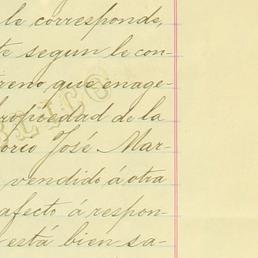 le corresponde,
te segun le con-
reno, que enage-
propiedad de la
orio José Mar-
vendido á otra
afecto á respon-
está bien sa-